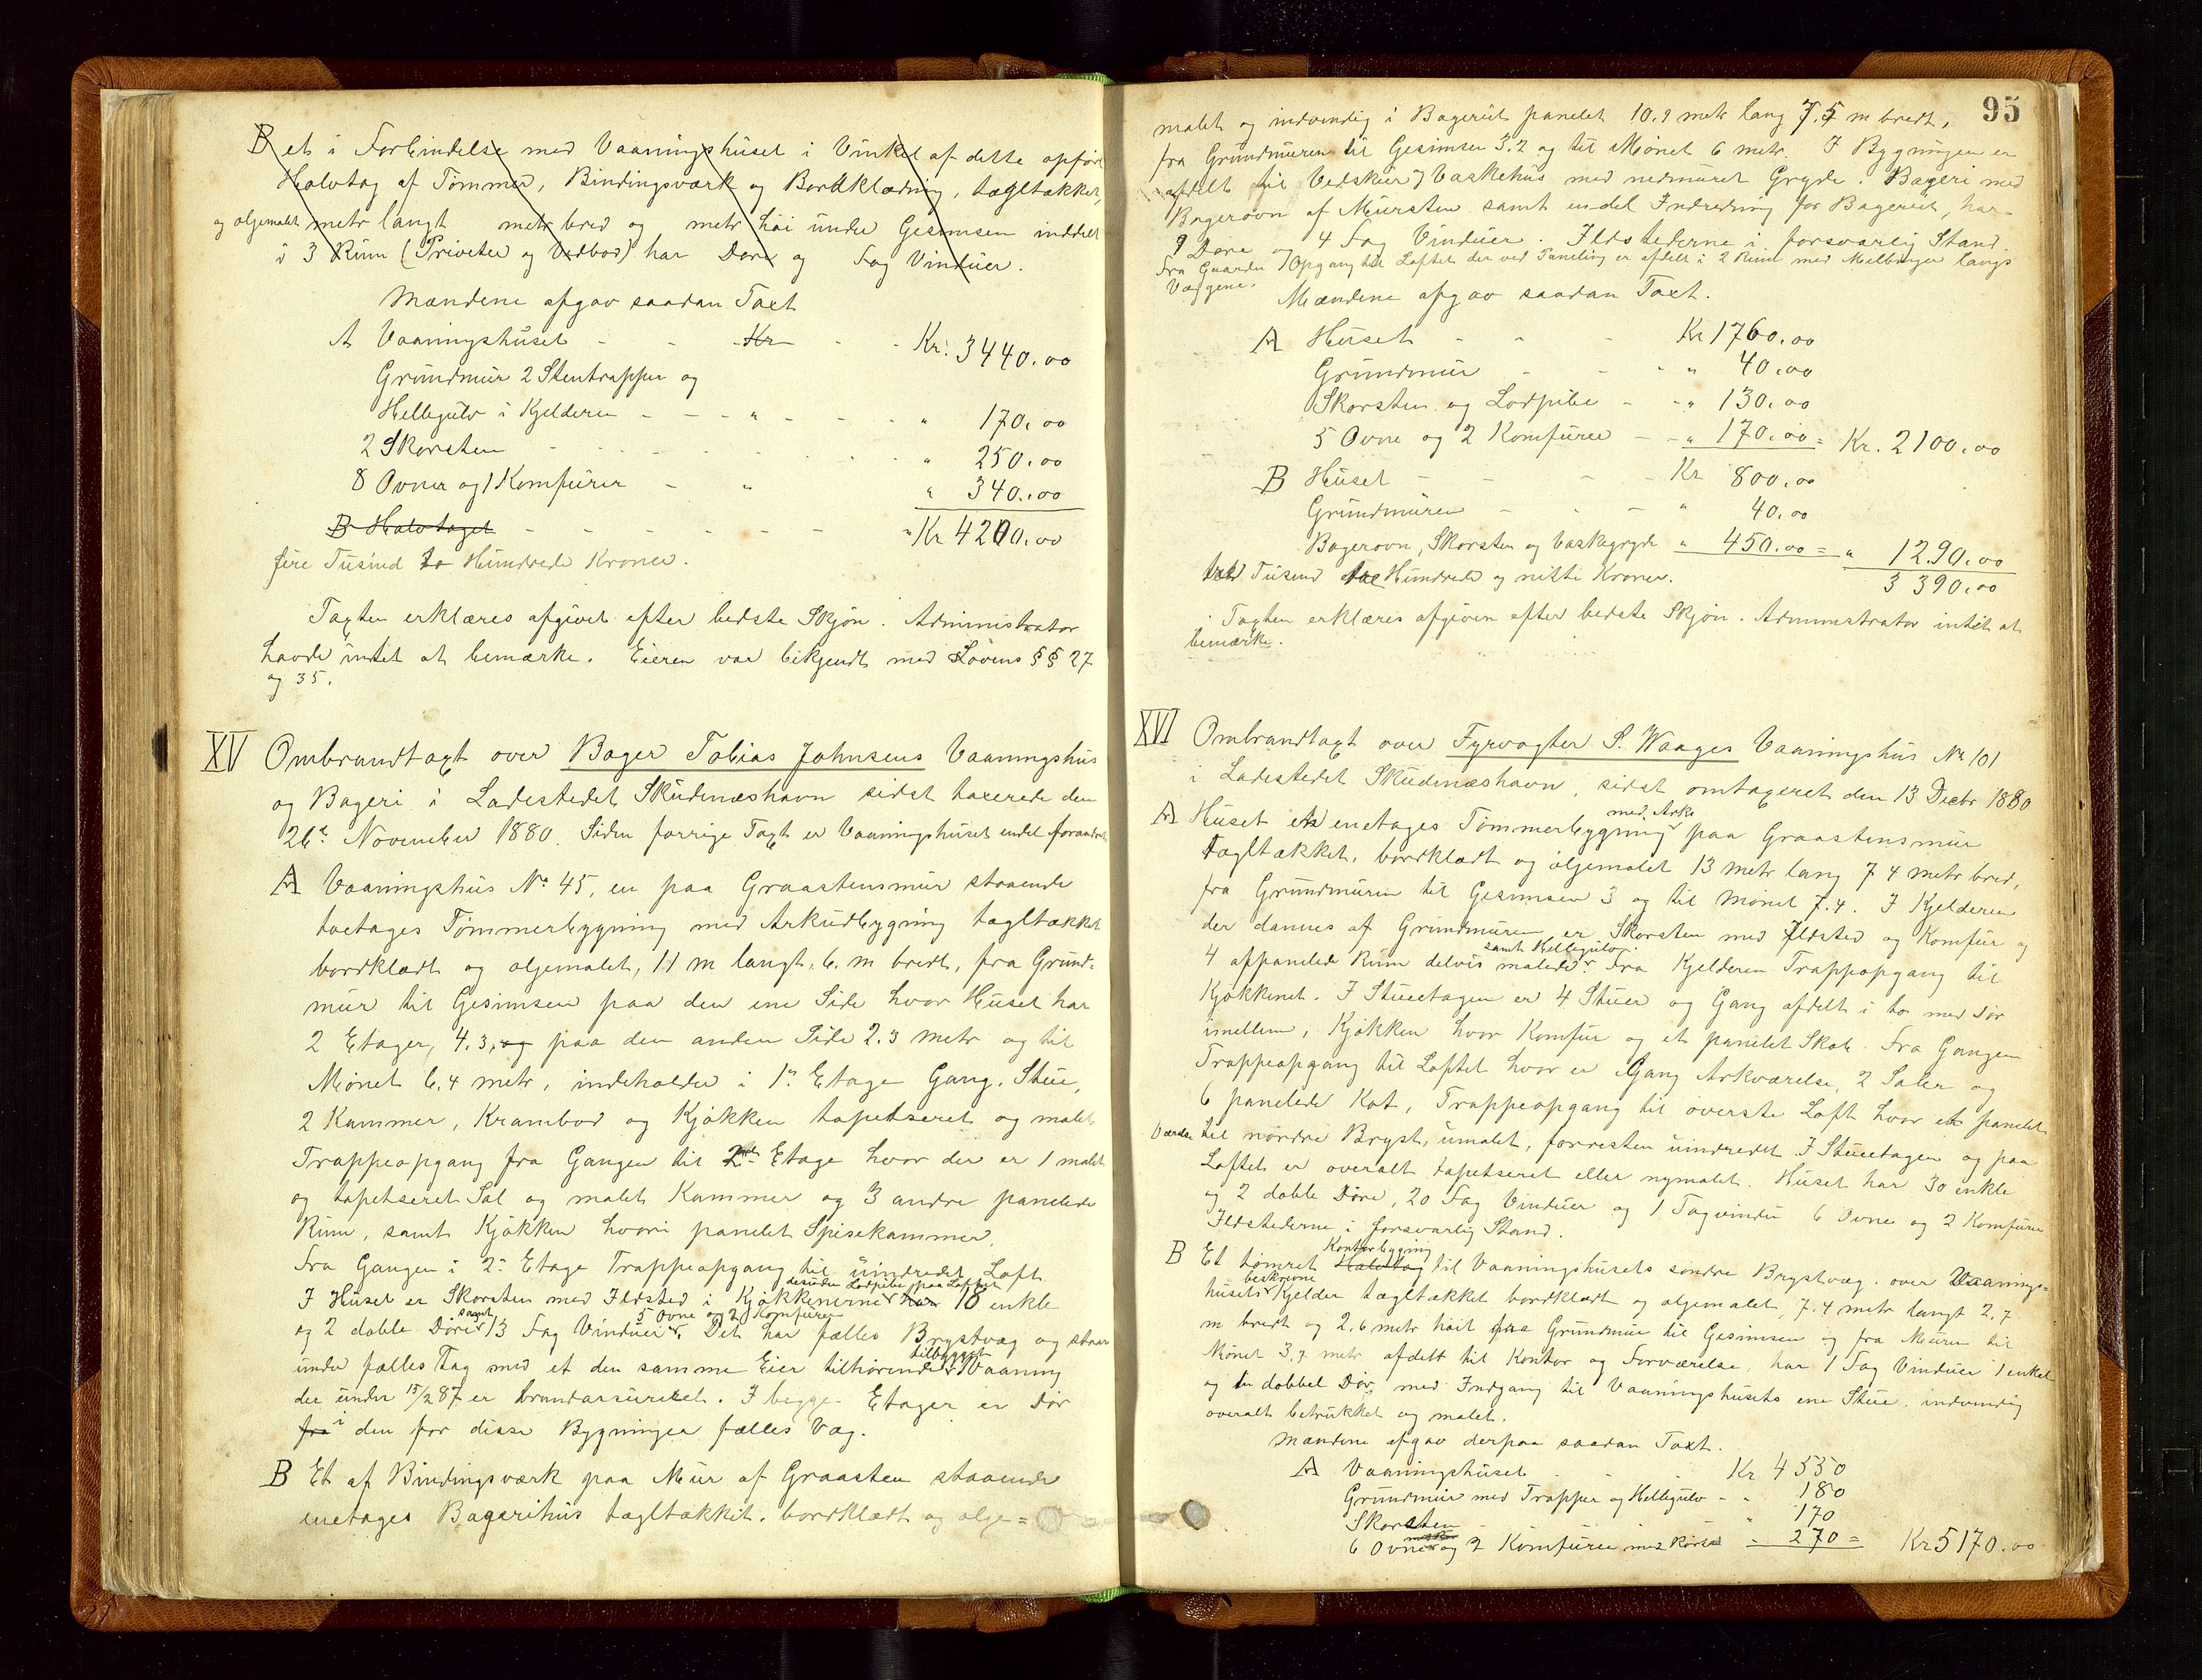 B et i Forbindelse med Vaaningshuset i Vinkel af dette opført
Halvtag af Tømmer, Bindingsværk og Bordklædning, tagltækket,
og oljemalet metr langt metr bred og metr høi under Gesimsen inddelt
i 3 Rum (Priveter og Vedbod) har Døre og Fag Vinduer.
Mændene afgav saadan Taxt
A Vaaningshuset - - Kr - - Kr. 3440.00
Grundmur 2 Stentrapper og
Hellegulv i Kjelderen - - - " - - - " 170.00
2 Skorsten - - - - - - " 250.00
8 Ovne og 1 Komfurer - " " 340.00
B Halvtaget - - - - - - Kr 4200.00
fire Tusind to Hundrede Kroner.
Taxten erklæres afgivet efter bedste Skjøn. Administrator
havde intet at bemærke. Eieren var bekjendt med Lovens §§ 27
og 35.
XV Ombrandtaxt over Bager Tobias Johnsens Vaaningshus
og Bageri i Ladestedet Skudeneshavn sidst taxerede den
26de November 1880. Siden forrige Taxt er Vaaningshuset endel forandret
A Vaaningshus No 45, en paa Graastensmur staaende
toetages Tømmerbygning med Arkudbygning tagltækket
bordklædt og oljemalet, 11 m langt, 6. m bredt, fra Grund-
mur til Gesimsen paa den ene Side hvor Huset har
2 Etager, 4.3, og paa den anden Side 2.3 metr og til
Mønet 6.4 metr, indeholder i 1ste Etage Gang, Stue,
2 Kammer, Krambod og Kjøkken tapetseret og malet
Trappeopgang fra Gangen til 2den Etage hvor der er 1 malet
og tapetseret Sal og malet Kammer og 3 andre panelede
Rum, samt Kjøkken hvori panelet Spisekammer.
Fra Gangen i 2den Etage Trappeopgang til uindredet Loft
desuden Lodpibe paa Loftet
I Huset er Skorsten med Ildsted i Kjøkkenerne har 18 enkle
samt 5 Ovne og 2 Komfurer
og 2 doble Døre 13 Fag Vinduer. Det har fælles Brystvæg og staar
tilbygget
under fælles Tag med et den samme Eier tilhørende Vaaning
der under 15/2 87 er brandassureret. I begge Etager er Dør
fra i den for disse Bygninger fælles Væg.
B Et af Bindingsværk paa Mur af Graasten staaende
enetages Bagerihus tagltækket, bordklædt og olje=
95
malet og indvendig i Bageriet panelet 10.9 metr lang 7.5 m bredt,
fra Grundmuren til Gesimsen 3.2 og til Mønet 6 metr. I Bygningen er
afdelt til Vedskur, Vaskehus med nedmuret Gryde. Bageri med
Bagerovn af Mursten samt endel Indredning for Bageriet, har
9 Døre og 4 Fag Vinduer. Ildstederne i forsvarlig Stand.
Fra Gaarden Opgang til Loftet der ved Paneling er afdelt i 2 Rum med Melbinger langs
Væggene.
Mændene afgav saadan Taxt.
A Huset - - - Kr 1760.00
Grundmur - - - " 40.00
Skorsten og Lodpibe - - " 130.00
5 Ovne og 2 Komfurer - - " 170.00 = Kr. 2100.00
B Huset - - - Kr 800.00
Grundmuren - - - " 40.00
Bagerovn, Skorsten og Vaskegryde " 450.00 = " 1290.00
3390.00
tre Tusend tre Hundrede og nitti Kroner.
Taxten erklæres afgiven efter bedste Skjøn. Administrator intet at
bemærke.
XVI Ombrandtaxt over Fyrvogter S. Waages Vaaningshus No 101
i Ladestedet Skudeneshavn, sidst omtaxeret den 13 Decbr 1880
med Ark
A Huset en enetages Tømmerbygning paa Graastensmur
tagltækket, bordklædt og oljemalet 13 metr lang 7.4 metr bred,
fra Grundmuren til Gesimsen 3 og til Mønet 7.4. I Kjelderen
der dannes af Grundmuren er Skorsten med Ildsted og Komfur og
samt Hellegulv.
4 afpanelede Rum delvis malede. Fra Kjelderen Trappopgang til
Kjøkkenet. I Stueetagen er 4 Stuer og Gang afdelt i to med Dør
imellem, Kjøkken hvor Komfur og et panelet Skab. Fra Gangen
Trappeopgang til Loftet hvor er Gang Arkværelse, 2 Saler og
6 panelede Kot, Trappeopgang til øverste Loft hvor et panelet
Værelse til nordre Bryst, umalet, forresten uindredet. I Stueetagen og paa
Loftet er overalt tapetseret eller nymalet. Huset har 30 enkle
og 2 doble Døre, 20 Fag Vinduer og 1 Tagvindu 6 Ovne og 2 Komfurer
Ildstederne i forsvarlig Stand.
Kontorbygning
B Et tømret Halvtag til Vaaningshusets søndre Brystvæg, over Vaanings-
beskrevne
husets Kjelder tagltækket bordklædt og oljemalet, 7.4 metr langt 2,7
m bredt og 2.6 metr høit fra Grundmur til Gesimsen og fra Muren til
Mønet 3.7 metr afdelt til Kontor og Forværelse, har 1 Fag Vinduer 1 enkel
og en dobbel Dør, med Indgang til Vaaningshusets ene Stue, indvendig
overalt betrukket og malet.
Mændene afgav derpaa saadan Taxt.
A Vaaningshuset - - - Kr 4550
Grundmur med Trapper og Hellegulv - " 180
Skorsten - - " 170
6 Ovne og 2 Komfurer med Rør " 270 = Kr 5170.00